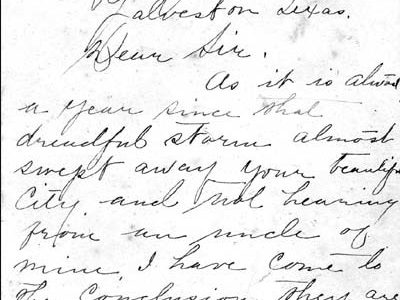 Galveston Texas.
Dear Sir.
As it is almost
a year since that
dreadful storm almost
swept away your beautiful
City and not hearing
from an uncle of
mine, I have come to
the Conclusion they are